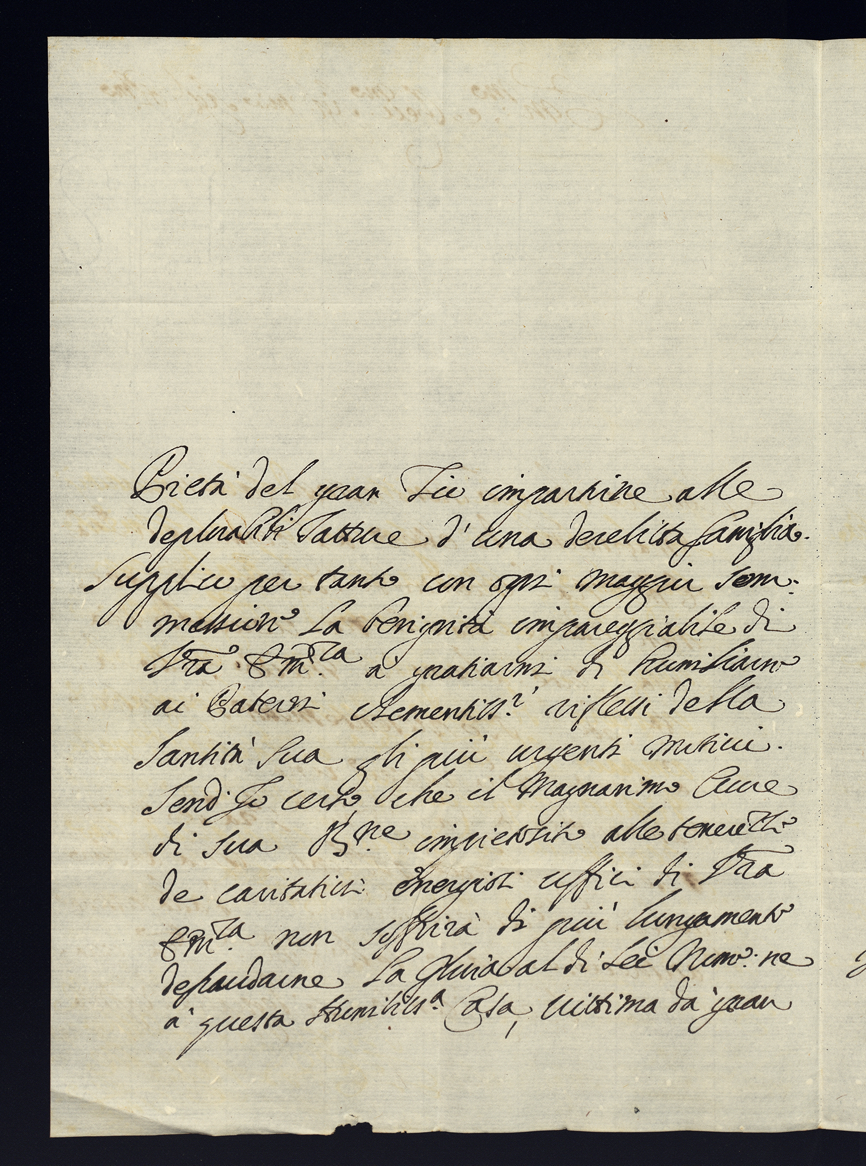 Pietà del gran Zio impartirne alle
deplorabili Iatture d'una derelitta famiglia.
Supplico per tanto con ogni maggior som:
missione La benignità impareggiabile di
Vrã Em.ᶻᵃ à gratiarmi di humiliarne
ai Paterni clementiss.ⁱ riflessi della
Santità Sua gli più urgenti motivi.
Send'Io certo, che il Magnanimo Cuore
di Sua B.ⁿᵉ impietosito alle
de caritativi energici uffici di Vrã
Em.ᶻᵃ non soffrirà di più lungamente
defraudarne La gloria al di Lei Nome: ne
à questa Humiliss.ᵃ Casa, Vittima da gran